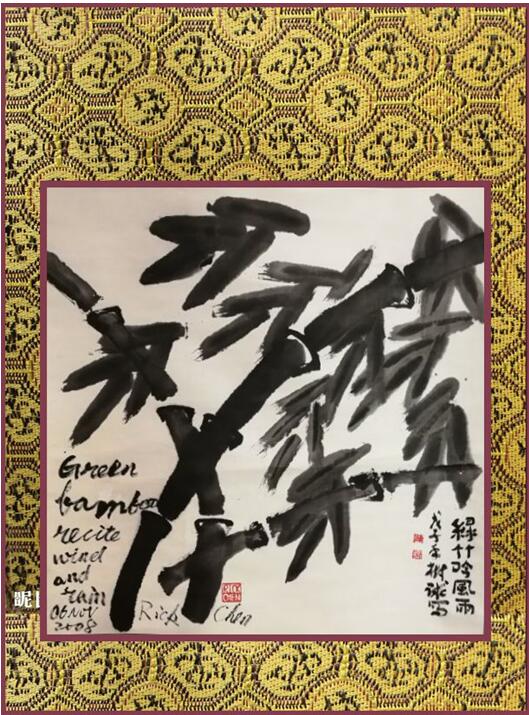 Green
bamboo
recite
wind
and
rain
06 NOV
2008
Rick Chen
RICK
CHEN
綠竹吟風雨
戊子年樹寫
昵